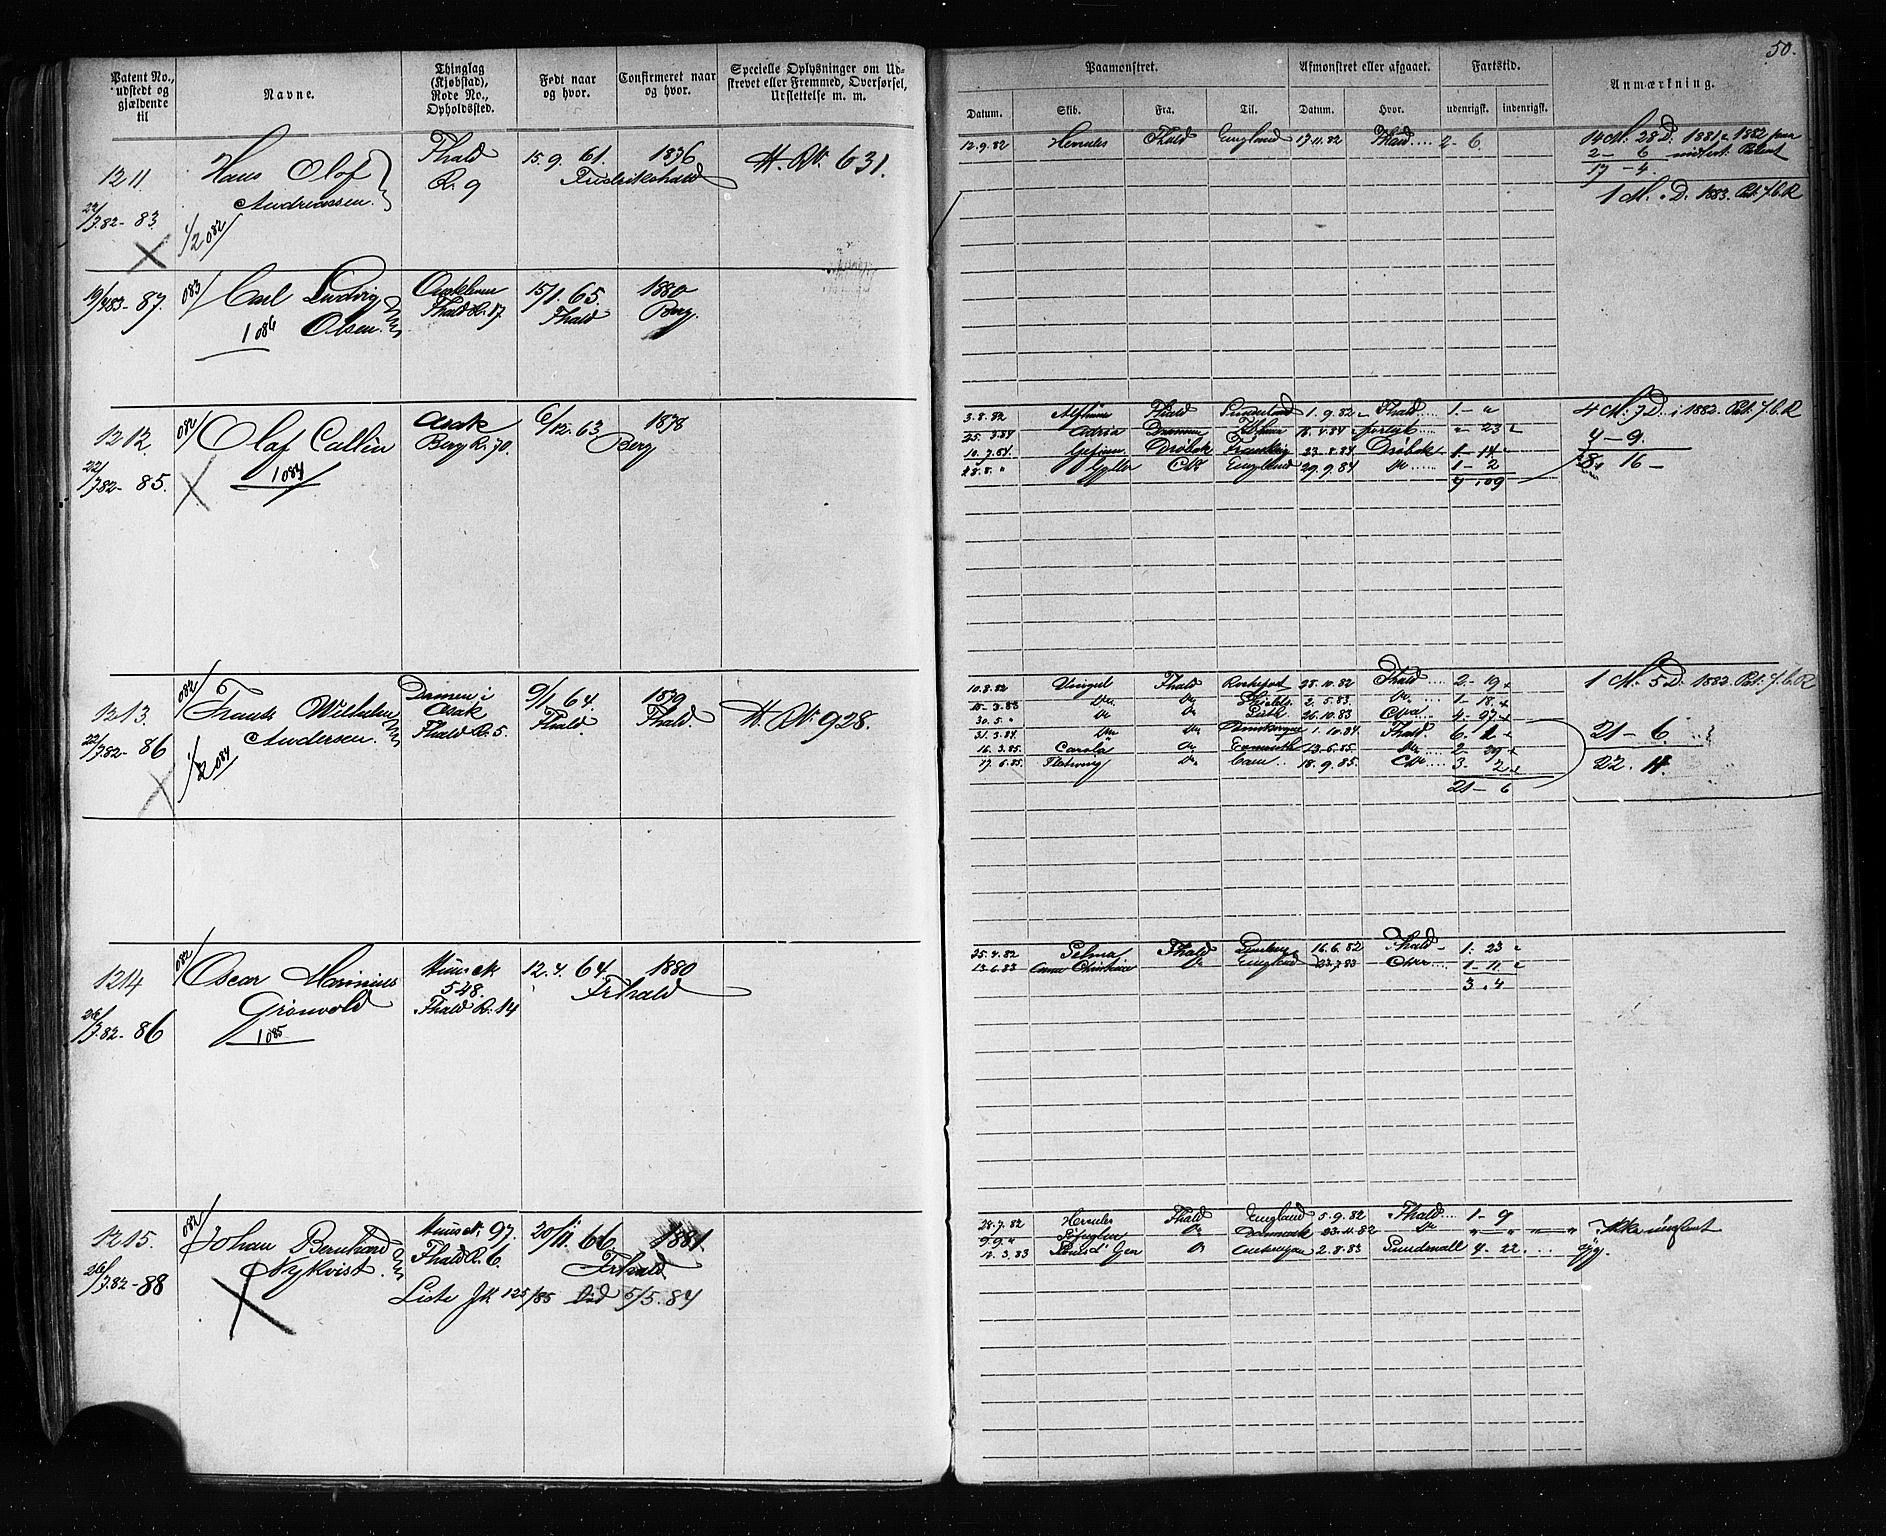 50.
Patent No., udstedt og gjældende til
Navne.
Thinglag (Kjøbstad), Rode No., Opholdssted.
Født naar og hvor.
Confirmeret naar og hvor.
Specielle Oplysninger om Udstrevet eller Fremmed, Overførsel, Udslettelse m. m.
Paamønstret.
Afmønstret eller afgaaet.
Fartstid.
Anmærkning.
Datum.
Skib.
Fra.
Til.
Datum.
Hvor.
udenrigsk.
indenrigsk.
1211.
22/7.82 - 83.
Hans Olaf
Andreassen.
1/2 082/
Fhald
R. 9
15. 9. 61.
1876
Fredrikshald
H. No. 631.
12.9.82 Hercules Fhald England 17.11.82 Fhald 2 - 6
14 M. 28 D. 1881 & 1882 paa
2 - 6 indlev. Patent
17 - 4.
1 M. " D. 1883. Pat. f. C. R
19/4 83 - 87.
083/
Carl Ludvig
Olsen.
1 086
Fhald R. 87
15/1. 65.
Fhald
1880
Berg.
1212.
22/7.82 - 85.
082/
Olaf Callin
1 084
Asak
Berg R. 70.
6/12. 63.
1878
Berg
3.8.82 Fhald Sunderland 1.9.82 Fhald 1 - "
25.3.84 Adria Drammen 16.4.84 " - 23
10.7.84 Drøbak 23.8.84 Drøbak 1 - 14
England 29.9.84 Do 1 - 2
4 M. 7 D. i 1882. Pat. f. C. R
4 - 9.
8. 16 -
1213.
22/7.82 - 86
082/
Frants Wilhelm
Andersen.
1/2 084
Damen i
Asak
Fhald R. 5.
9/1 64.
Fhald.
1879
Fhald.
H. No 928.
10.8.82 Fhald 28.10.82 Fhald 2 - 19
15.3.83 Do Do Shields 2.5.83 Do 1 - 18
30.5. " Do Do Leith 26.10.83 Do 4 - 27
31.3.84 Do Do 1.10.84 Fhald. 6. 1
16.3.85. Carola Do 13.6.85. Do 2 - 29
17.6.85. Do Caen 18.9.85. Do 3. 2
21 - 6
1 M. 5 D. 1882. Pat. f. C. R
21 - 6.
22. 11.
1214
26/7.82 - 86
082/
Oscar Marinius
Grønvold
1 085
Huus No
548.
Fhald R. 14
12. 4. 64.
1880
Frhald
25.4.82 Selma Fhald 16.6.82 Fhald 1. 23
13.6.83 Anne Christine Do England 22.7.83 Do 1 - 11
3. 4
1215.
26/7.82 - 88
082/
Johan Bernhard
Nykvist.
Huus No. 97.
Fhald R. 6.
20/11. 66
1881
Frhald
Liste Jk 125/85 Død 5/5. 84
28.7.82 Hercules Fhald England 5.9.82 Fhald 1 - 9
9.9. " Do Danmark 23.11.82 Do " - " - "
12.3.83 Do 2.8.83 Sundsvall 4 - 22
Ikke